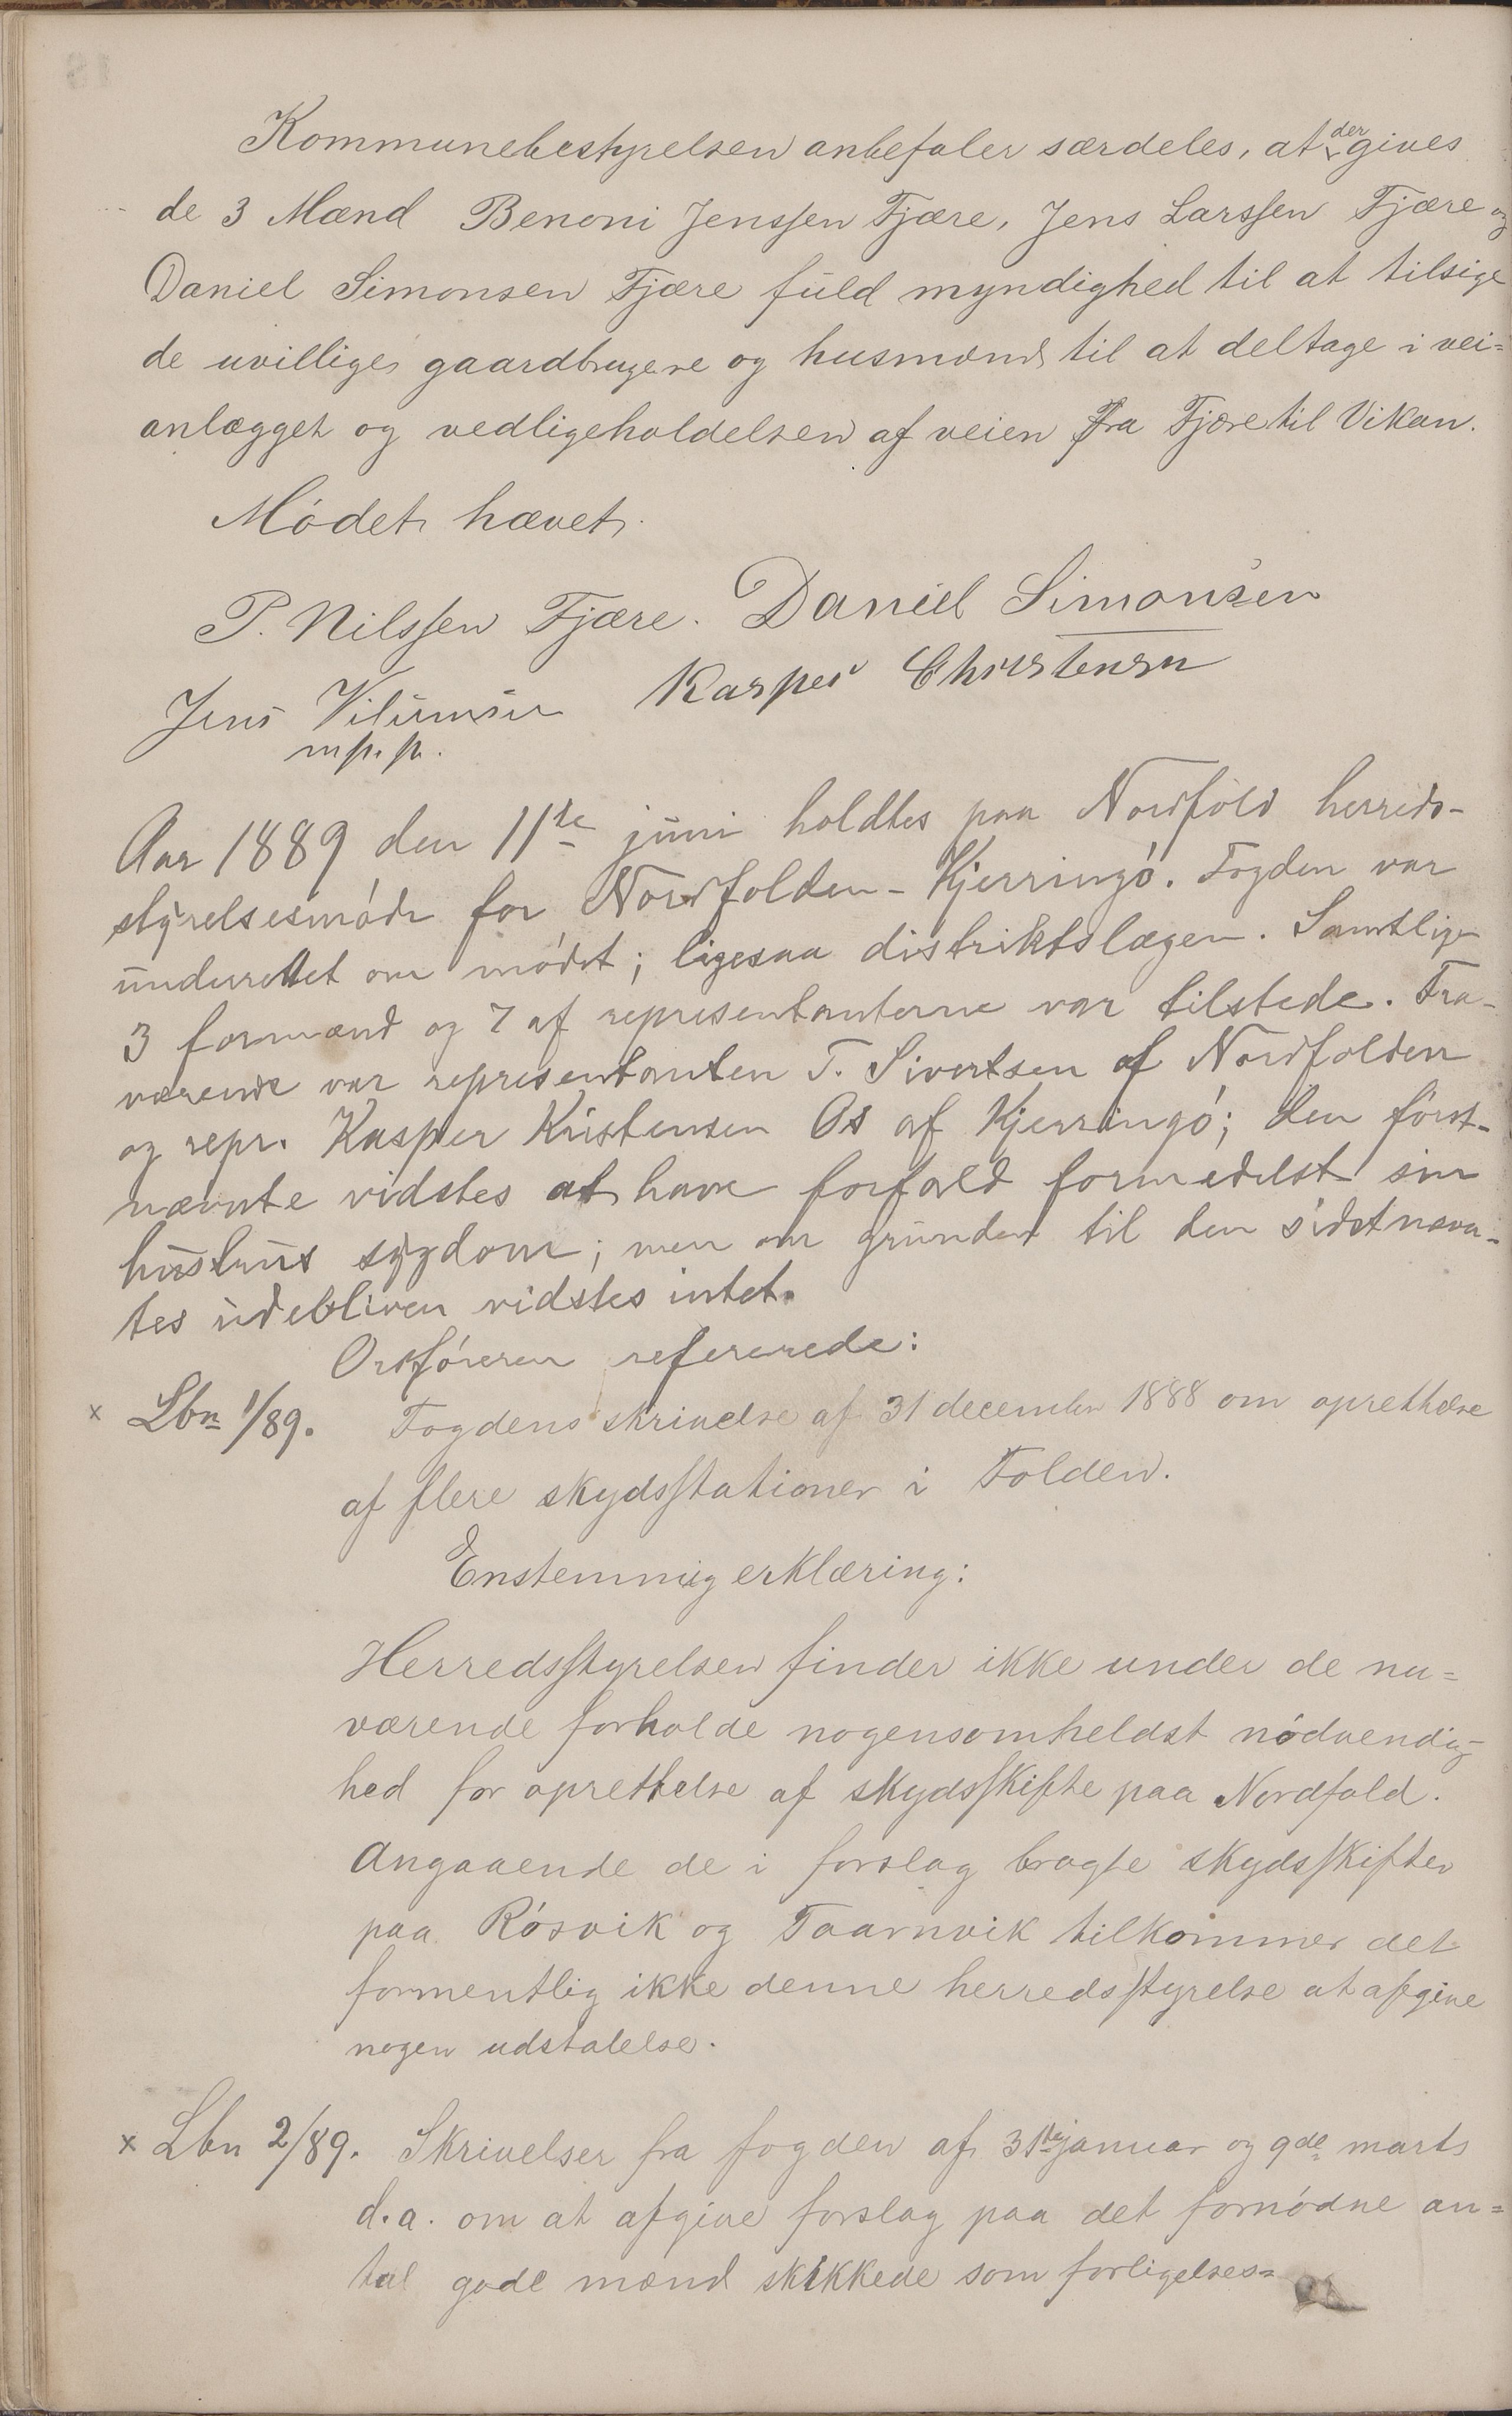 Kommunebestyrelsen anbefaler særdeles, at der gives
de 3 Mænd Benoni Jenssen Fjære, Jens Larssen Fjære og
Daniel Simonsen Fjære fuld myndighed til at tilsige
de uvillige gaardbrugere og husmænd til at deltage i vei=
anlægget og vedligeholdelsen af veien fra Fjære til Vikan.
Mødet hævet.
P. Nilssen Fjære. Daniel Simonsen
Jens Kasper Christensen
m. p. p.
Aar 1889 den 11te juni holdtes paa Nordfold herreds-
styrelsesmøde for Nordfolden-Kjerringø. Fogden var
underrettet om mødet; ligesaa distriktslægen. Samtlige
3 formænd og 7 af representanterne var tilstede. Fra-
værende var representanten T. Sivertsen af Nordfolden
og repr. Kasper Kristensen Os af Kjerringø; den først-
nævnte vidstes at have forfald formedelst sin
hustrus sygdom; men om grunden til den sidstnævn-
tes udebliven vidstes intet.
Ordføreren refererede:
x Lbn 1/89. Fogdens skrivelse af 31 december 1888 om oprettelse
af flere skydsstationer i Folden.
Enstemmig erklæring:
Herredsstyrelsen finder ikke under de nu=
værende forholde nogensomheldst nødvendig=
hed for oprettelse af skydsskifte paa Nordfold.
Angaaende de i forslag bragte skydsskifter
paa Røsvik og Taarnvik tilkommer det
formentlig ikke denne herredsstyrelse at afgive
nogen udstalelse.
x Lbn 2/89. Skrivelser fra fogden af 31te januar og 9de marts
d.a. om at afgive forslag paa det fornødne an=
tal gode mænd skikkede som forligelses=